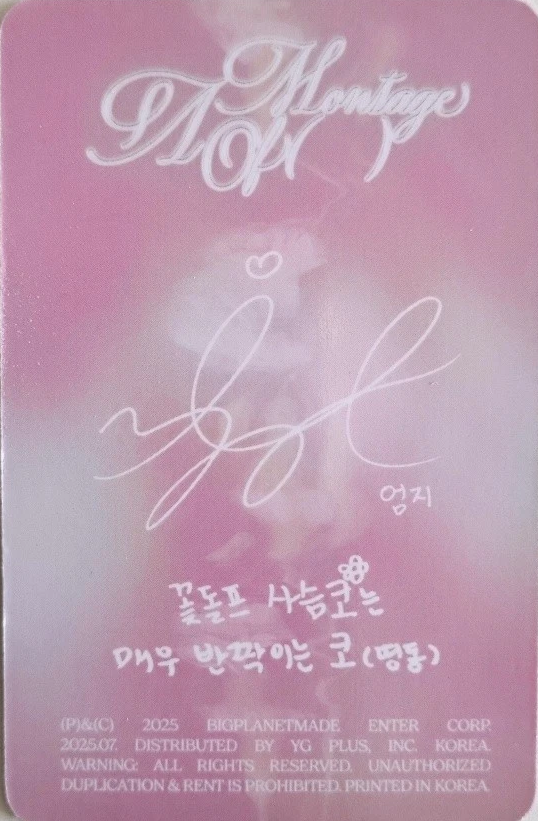 A Montage
Of( )
엄지
꽃돌프 사슴코는
매우 반짝이는 코(띵동)
(P)&(C) 2025 BIGPLANETMADE ENTER CORP.
2025.07. DISTRIBUTED BY YG PLUS, INC. KOREA.
WARNING: ALL RIGHTS RESERVED. UNAUTHORIZED
DUPLICATION & RENT IS PROHIBITED. PRINTED IN KOREA.